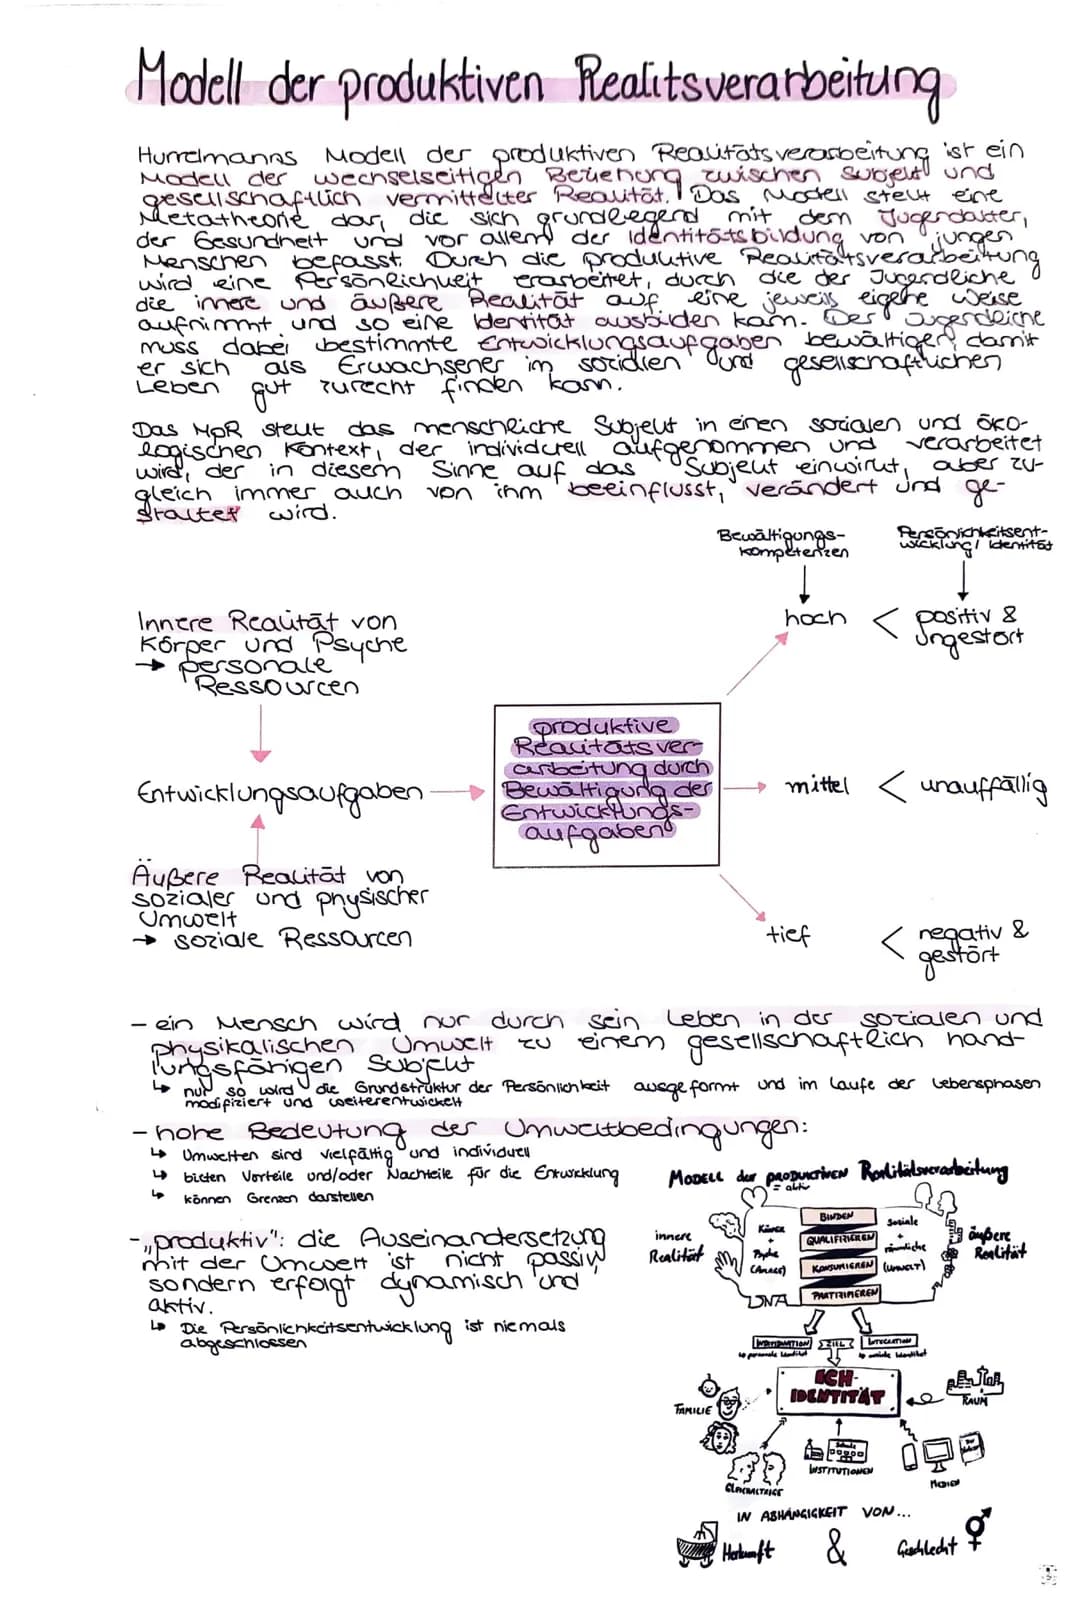 Modell der produktiven Realitsverarbeitung
Hurrelmanns Modell der produktiven Realitätsverarbeitung ist ein
Modell der wechselseitigen Beziehung zwischen Subjekt und
gesellschaftlich vermittelter Realität. Das Modell stellt eine
Metatheorie dar, die sich grundlegend mit dem Jugendalter,
der Gesundheit und vor allem der Identitätsbildung von jungen
Menschen befasst. Durch die produktive Realitätsverarbeitung
wird eine Persönlichkeit erarbeitet, durch die der Jugendliche
die innere und äußere Realität auf eine jeweils eigene Weise
aufnimmt und so eine Identität ausbilden kann. Der Jugendliche
muss dabei bestimmte Entwicklungsaufgaben bewältigen, damit
er sich als Erwachsener im sozialen und gesellschaftlichen
Leben gut zurecht finden kann.
Das MpR stellt das menschliche Subjekt in einen sozialen und öko-
logischen Kontext, der individuell aufgenommen und verarbeitet
wird, der in diesem Sinne auf das Subjekt einwirkt, aber zu-
gleich immer auch von ihm beeinflusst, verändert und ge-
staltet wird.
Bewältigungs-
kompetenzen
Persönlichkeitsent-
wicklung/ Identität
Innere Realität von
Körper und Psyche
→ personale
Ressourcen
hoch < positiv &
ungestört
produktive
Realitätsver-
arbeitung durch
Bewältigung der
Entwicklungs-
aufgaben
Entwicklungsaufgaben
mittel < unauffällig
Äußere Realität von
sozialer und physischer
Umwelt
→ soziale Ressourcen
tief < negativ &
gestört
- ein Mensch wird nur durch sein Leben in der sozialen und
physikalischen Umwelt zu einem gesellschaftlich hand-
lungsfähigen Subjekt
↳ nur so wird die Grundstruktur der Persönlichkeit ausgeformt und im Laufe der Lebensphasen
modifiziert und weiterentwickelt
- hohe Bedeutung der Umweltbedingungen:
↳ Umwelten sind vielfältig und individuell
↳ bieten Vorteile und/oder Nachteile für die Entwicklung
↳ können Grenzen darstellen
- „produktiv": die Auseinandersetzung
mit der Umwelt ist nicht passiv,
sondern erfolgt dynamisch und
aktiv.
↳ Die Persönlichkeitsentwicklung ist niemals
abgeschlossen
MODELL der PRODUKTIVEN Realitätsverarbeitung
= aktiv
innere
Realität
Körper
+
Psyche
(Anlage)
DNA
BINDEN
QUALIFIZIEREN
KONSUMIEREN
PARTIZIPIEREN
Soziale
+
räumliche
(UMWELT)
äußere
Realität
INDIVIDUATION
↳ personale Identität
ZIEL
INTEGRATION
↳ soziale Identität
ICH-
IDENTITÄT
FAMILIE
RAUM
GLEICHALTRIGE
Schule
INSTITUTIONEN
MEDIEN
IN ABHÄNGIGKEIT VON...
Herkunft & Geschlecht